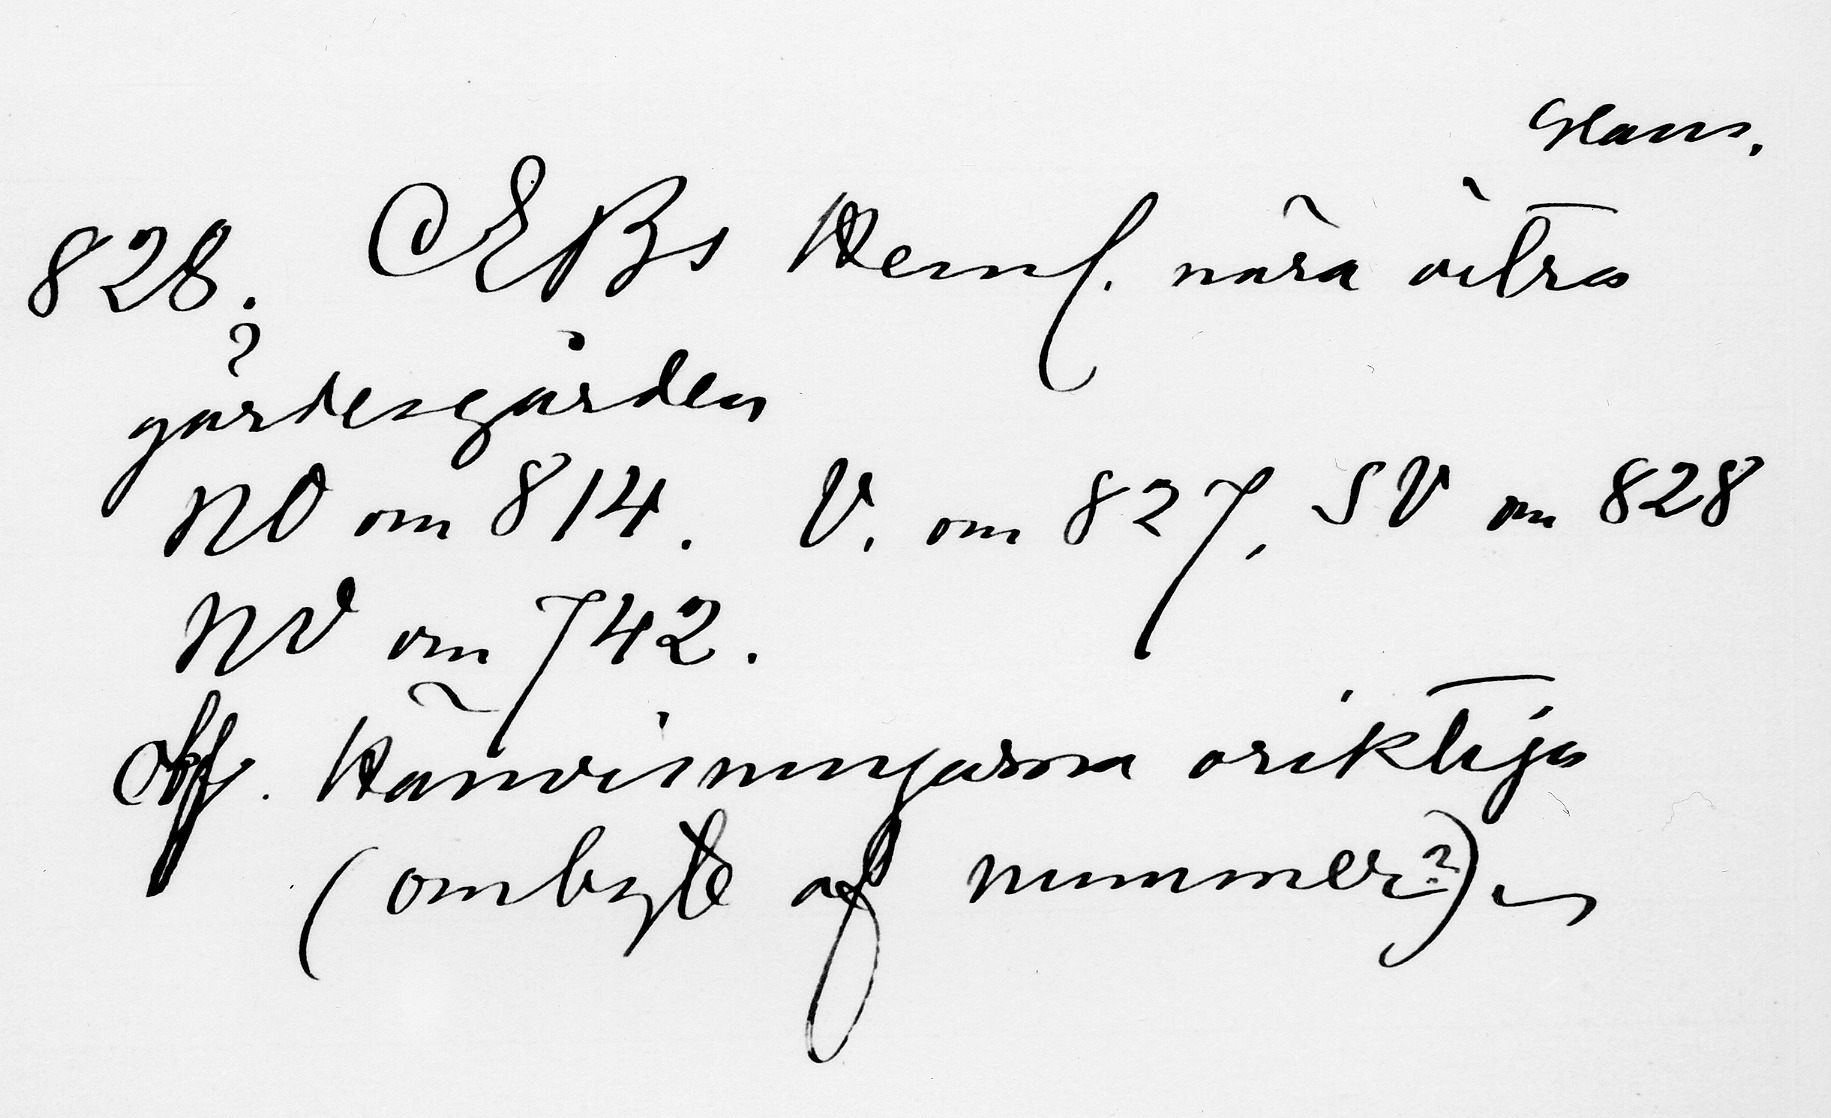 Hans.
828. EBs Hemf. nära västra
?
gärdesgården
NO om 814. V. om 827, SV om 828
NV om 742.
Hänvisningarna oriktiga
(ombyte af nummer?)